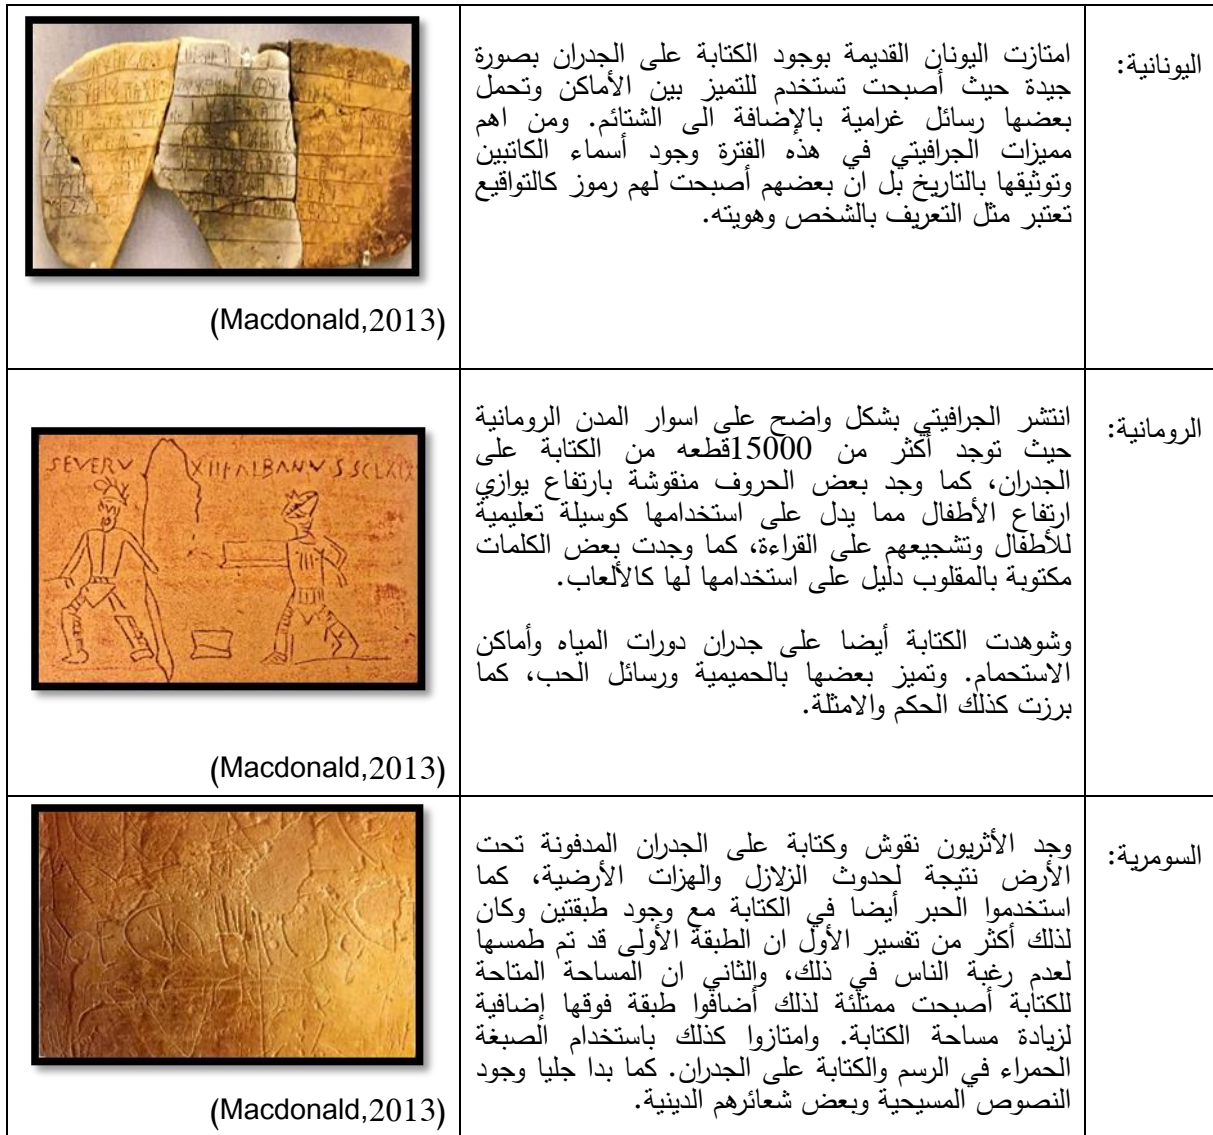 اليونانية:
امتازت اليونان القديمة بوجود الكتابة على الجدران بصورة
جيدة حيث أصبحت تستخدم للتميز بين الأماكن وتحمل
بعضها رسائل غرامية بالإضافة الى الشتائم. ومن اهم
مميزات الجرافيتي في هذه الفترة وجود أسماء الكاتبين
وتوثيقها بالتاريخ بل ان بعضهم أصبحت لهم رموز كالتواقيع
تعتبر مثل التعريف بالشخص وهويته.
(Macdonald,2013)
الرومانية:
انتشر الجرافيتي بشكل واضح على اسوار المدن الرومانية
حيث توجد أكثر من 15000قطعه من الكتابة على
الجدران، كما وجد بعض الحروف منقوشة بارتفاع يوازي
ارتفاع الأطفال مما يدل على استخدامها كوسيلة تعليمية
للأطفال وتشجيعهم على القراءة، كما وجدت بعض الكلمات
مكتوبة بالمقلوب دليل على استخدامها لها كالألعاب.
وشوهدت الكتابة أيضا على جدران دورات المياه وأماكن
الاستحمام. وتميز بعضها بالحميمية ورسائل الحب، كما
برزت كذلك الحكم والامثلة.
SEVERV
(Macdonald,2013)
السومرية:
وجد الأثريون نقوش وكتابة على الجدران المدفونة تحت
الأرض نتيجة لحدوث الزلازل والهزات الأرضية، كما
استخدموا الحبر أيضا في الكتابة مع وجود طبقتين وكان
لذلك أكثر من تفسير الأول ان الطبقة الأولى قد تم طمسها
لعدم رغبة الناس في ذلك، والثاني ان المساحة المتاحة
للكتابة أصبحت ممتلئة لذلك أضافوا طبقة فوقها إضافية
لزيادة مساحة الكتابة. وامتازوا كذلك باستخدام الصبغة
الحمراء في الرسم والكتابة على الجدران. كما بدا جليا وجود
النصوص المسيحية وبعض شعائرهم الدينية.
(Macdonald,2013)